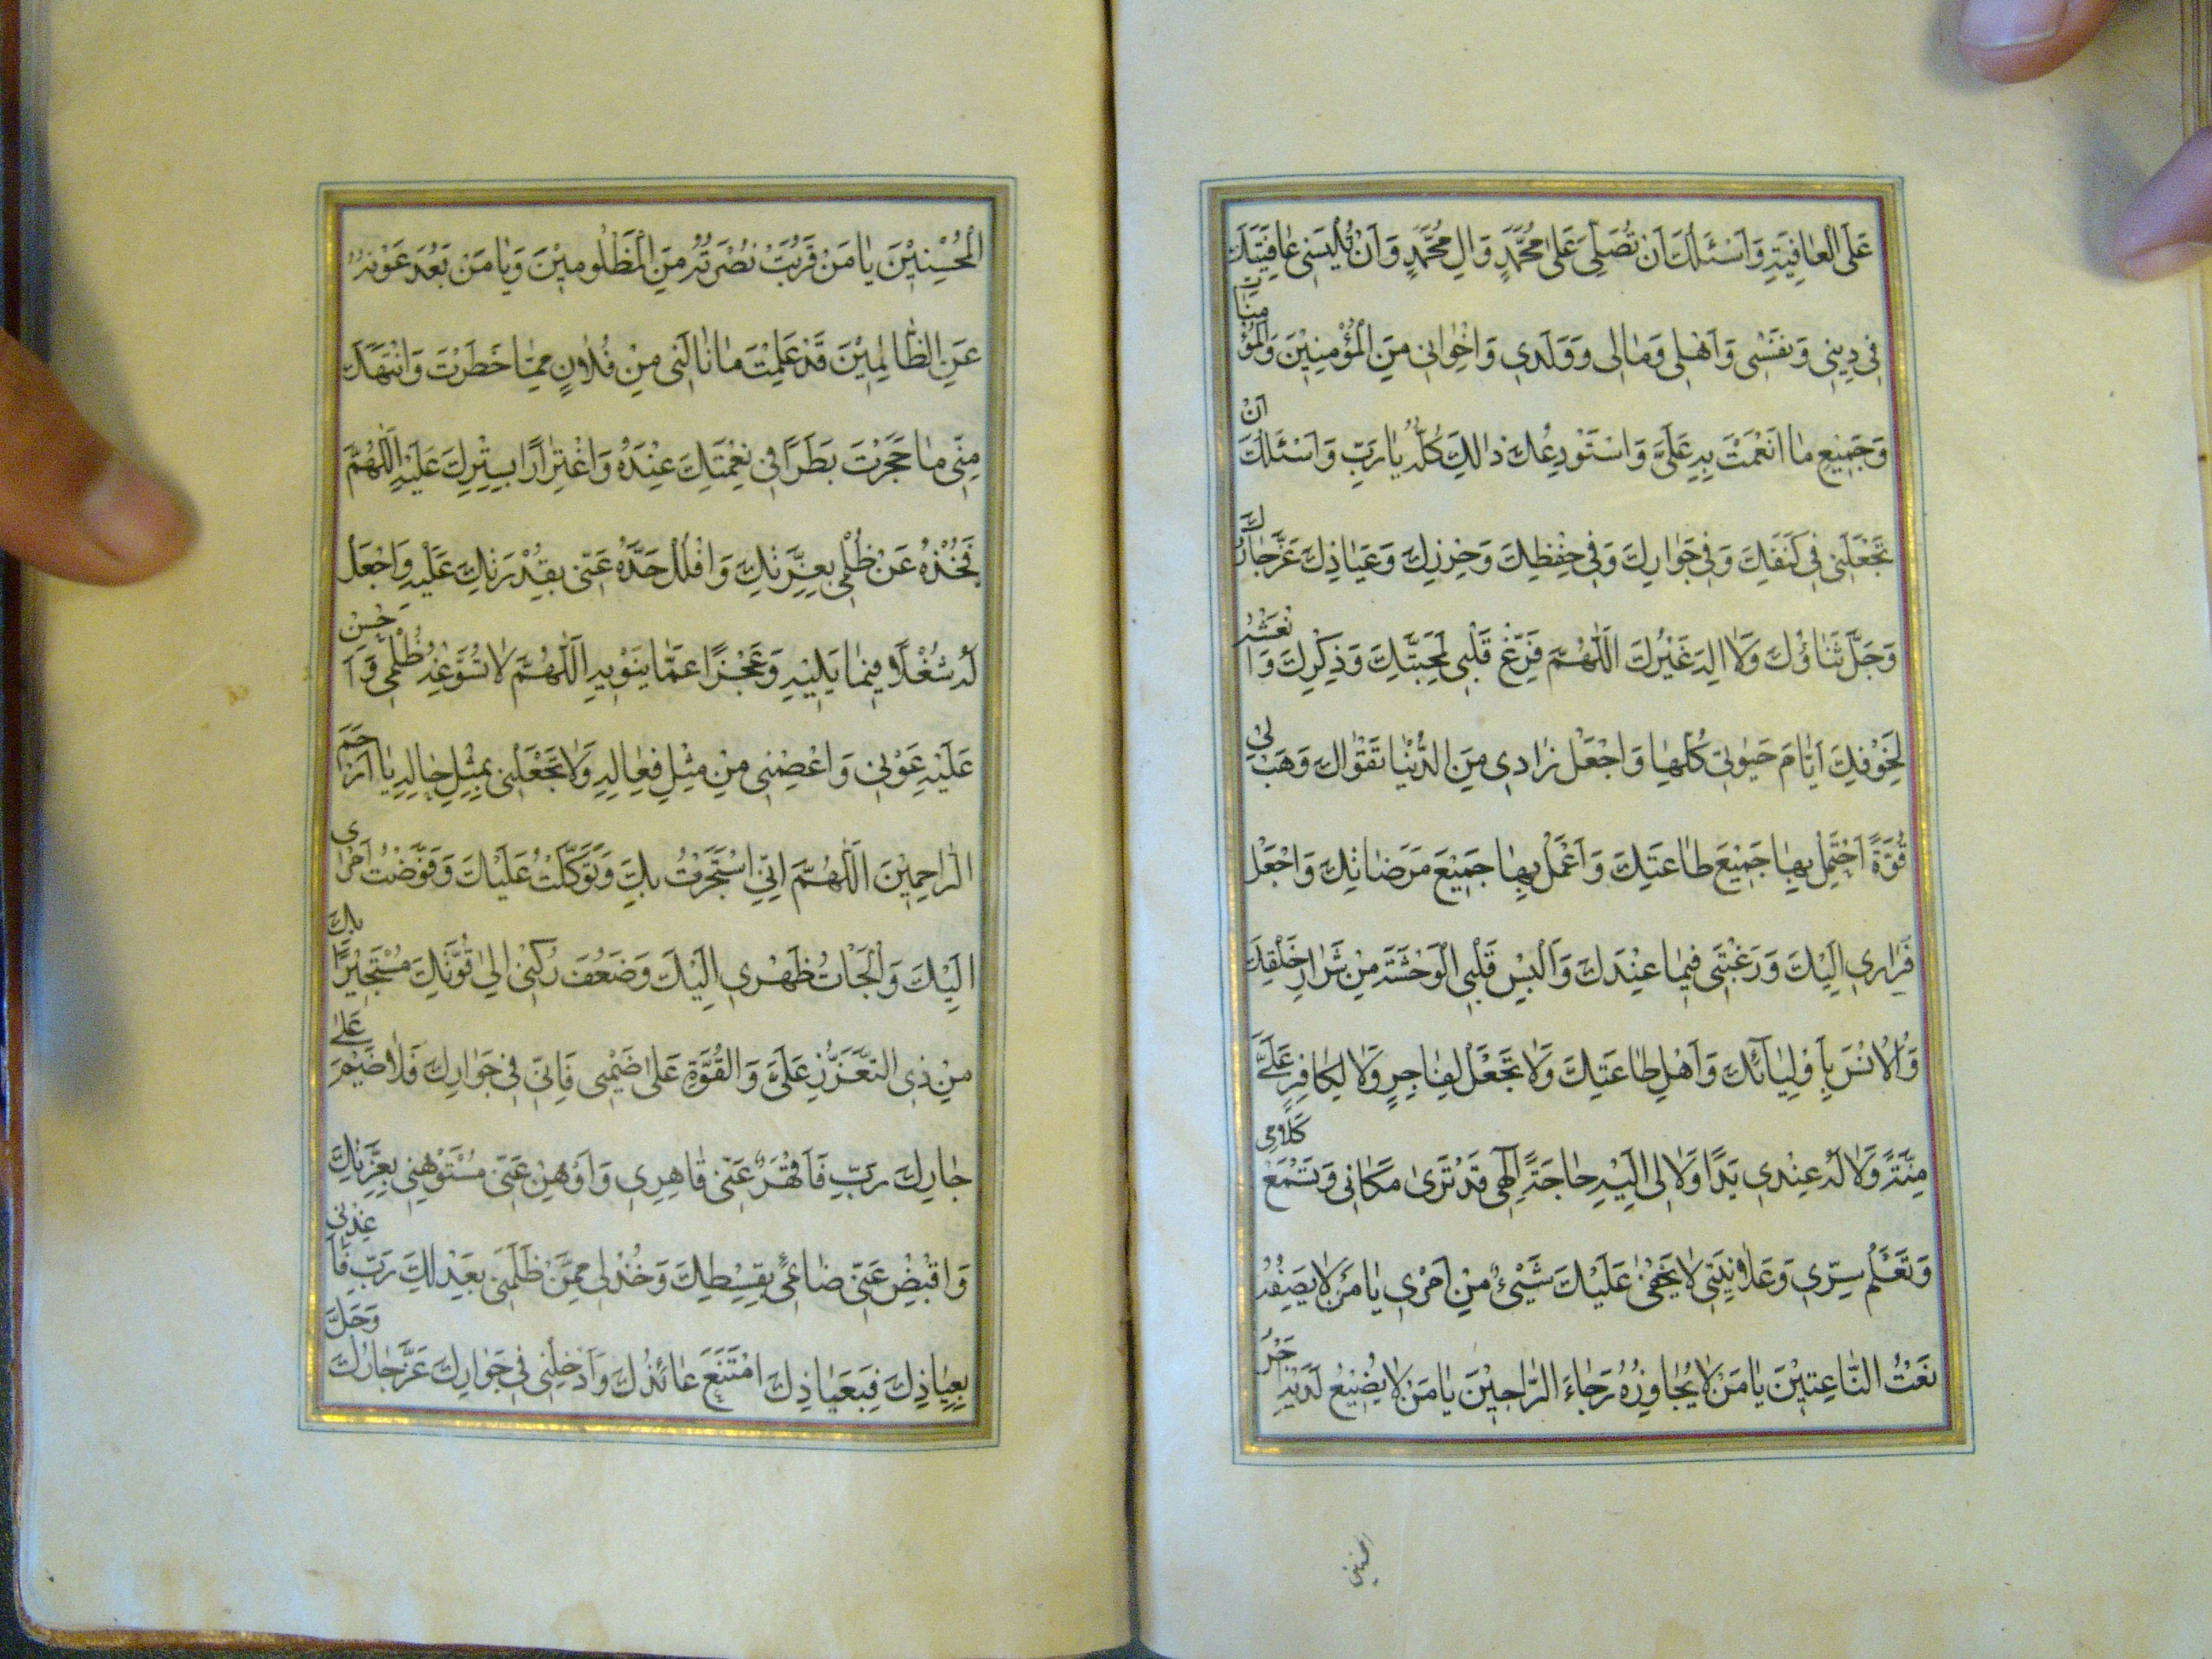 عَلَى الْعَافِيَةِ وَاَسْئَلُكَ اَنْ تُصَلِّىَ عَلٰى مُحَمَّدٍ وَالِ مُحَمَّدٍ وَاَنْ تُلْبِسَنِى عَافِيَتَكَ
فِى دِينِى وَنَفْسِى وَاَهْلِى وَمَالِى وَوَلَدِى وَاِخْوَانِى مِنَ الْمُؤْمِنِيْنَ وَالْمُؤْمِنَاتِ
وَجَمِيْعِ مَا اَنْعَمْتَ بِهِ عَلَىَّ وَاسْتَوْدِعُكَ ذٰلِكَ كُلَّهُ يَا رَبِّ وَاَسْئَلُكَ اَنْ
تَجْعَلَنِى فِى كَنَفِكَ وَفِى جَوَارِكَ وَفِى حِفْظِكَ وَحِرْزِكَ وَعَيَاذِكَ عَزَّ جَارُكَ
وَجَلَّ ثَنَاؤُكَ وَلَا اِلٰهَ غَيْرُكَ اَللّٰهُمَّ فَرِّغْ قَلْبِى لِمَحَبَّتِكَ وَذِكْرِكَ وَانْعَشْهُ
لِخَوْفِكَ اَيَّامَ حَيٰوتِى كُلِّهَا وَاجْعَلْ زَادِى مِنَ الدُّنْيَا تَقْوٰاكَ وَهَبْ لِى
قُوَّةً اَحْتَمِلُ بِهَا جَمِيْعَ طَاعَتِكَ وَاَعْمَلُ بِهَا جَمِيْعَ مَرَضَاتِكَ وَاجْعَلْ
فَرَارِى اِلَيْكَ وَرَغْبَتِى فِيمَا عِنْدَكَ وَاَلْبِسْ قَلْبِى الْوَحْشَةَ مِنْ شَرَارِ خَلْقِكَ
وَالْاُنْسَ بِاَوْلِيَائِكَ وَاَهْلِ طَاعَتِكَ وَلَا تَجْعَلْ لِفَاجِرٍ وَلَا لِكَافِرٍ عَلَىَّ
مِنَّةً وَلَا لَهُ عِنْدِى يَدًا وَلَا لِى اِلَيْهِ حَاجَةً اِلٰهِى قَدْ تَرٰى مَكَانِى وَتَسْمَعُ كَلَامِى
وَتَعْلَمُ سِرِّى وَعَلَانِيَتِى لَا يَخْفٰى عَلَيْكَ شَيْئٌ مِنْ اَمْرِى يَا مَنْ لَا يَصِفُهُ
نَعْتُ النَّاعِتِيْنَ يَا مَنْ لَا يُجَاوِزُهُ رَجَاءُ الرَّاجِيْنَ يَا مَنْ لَا يُضِيْعُ لَدَيْهِ اَجْرُ
الْمُحْسِنِيْنَ يَا مَنْ قَرُبَتْ نُصْرَتُهُ مِنَ الْمَظْلُومِيْنَ وَيَا مَنْ بَعُدَ عَوْنُهُ
عَنِ الظَّالِمِيْنَ قَدْ عَلِمْتَ مَا نَالَنِى مِنْ فُلَانٍ مِمَّا خَطَرْتَ وَانْتَهَكَ
مِنِّى مَا حَجَرْتَ بَطَرًا فِى نِعْمَتِكَ عِنْدَهُ وَاغْتِرَارًا بِسِتْرِكَ عَلَيْهِ اَللّٰهُمَّ
فَخُذْهُ عَنْ ظُلْمِى بِعِزَّتِكَ وَافْلُلْ حَدَّهُ عَنِّى بِقُدْرَتِكَ عَلَيْهِ وَاجْعَلْ
لَهُ شُغْلًا فِيمَا يَلِيْهِ وَعَجْزًا عَمَّا يَنْوِيهِ اَللّٰهُمَّ لَا تُسَوِّغْهُ ظُلْمِى وَاَحْسِنْ
عَلَيْهِ عَوْنِى وَاعْصِمْنِى مِنْ مِثْلِ فِعَالِهِ وَلَا تَجْعَلْنِى بِمِثْلِ حَالِهِ يَا اَرْحَمَ
الرَّاحِمِيْنَ اَللّٰهُمَّ اِنِّى اسْتَجَرْتُ بِكَ وَتَوَكَّلْتُ عَلَيْكَ وَفَوَّضْتُ اَمْرِى
اِلَيْكَ وَاَلْجَاْتُ ظَهْرِى اِلَيْكَ وَضَعْفَ رُكْنِى اِلٰى قُوَّتِكَ مُسْتَجِيْرًا بِكَ
مِنْ ذِى التَّعَزُّزِ عَلَىَّ وَالْقُوَّةِ عَلٰى ضَيْمِى فَاِنِّى فِى جَوَارِكَ فَلَا ضَيْمَ عَلٰى
جَارِكَ رَبِّ فَاقْهَرْ عَنِّى قَاهِرِى وَاَوْهِنْ عَنِّى مُسْتَوْهِنِى بِعِزَّتِكَ
وَاقْبِضْ عَنِّى ضَائِمِى بِقِسْطِكَ وَخُذْ لِى مِمَّنْ ظَلَمَنِى بِعَدْلِكَ رَبِّ فَاَعِذْنِى
بِعِيَاذِكَ فَبِعَيَاذِكَ امْتَنَعَ عَائِذُكَ وَاَدْخِلْنِى فِى جَوَارِكَ عَزَّ جَارُكَ وَجَلَّ